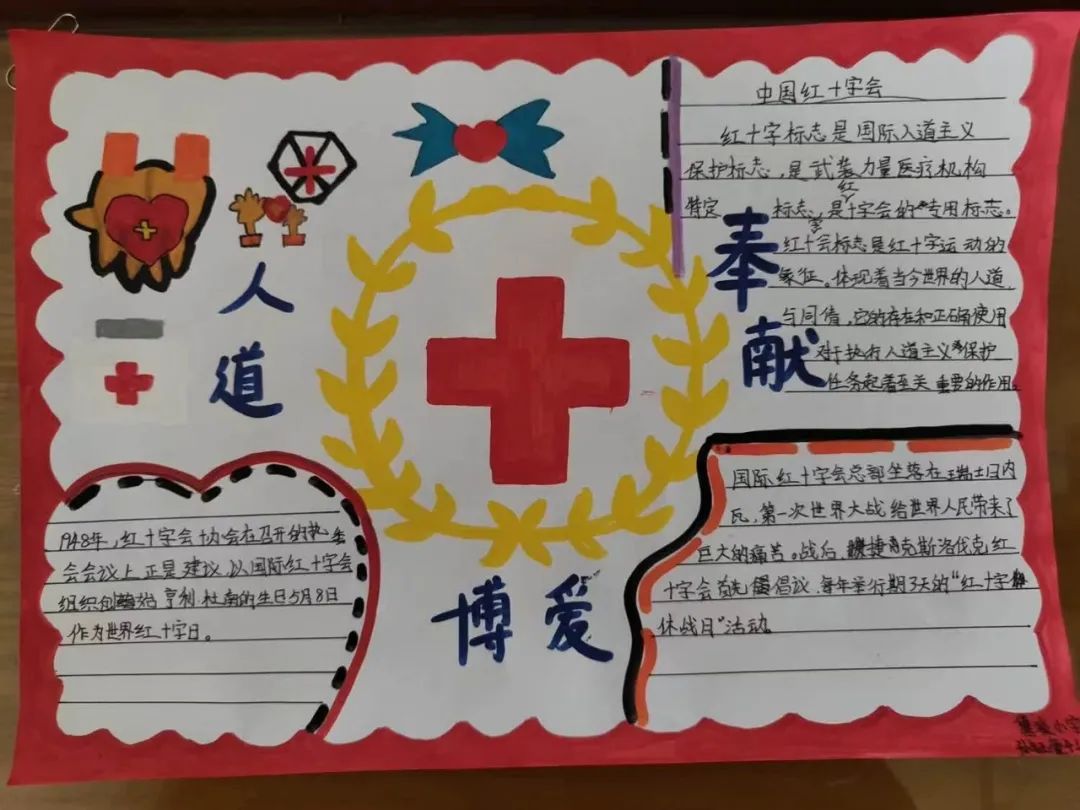 人
道
博爱
奉
献
中国红十字会
红十字标志是国际入道主义
保护标志，是武装力量医疗机构
特定 标志，是红十字会的专用标志。
红十字会标志是红十字运动的
象征。体现着当今世界的人道
与同情，它的存在和正确使用
对于执行人道主义保护
任务起着至关重要的作用。
1948年，红十字会协会在召开的执委
会会议上正是建议以国际红十字会
组织创始 亨利·杜南的生日5月8日
作为世界红十字日。
国际红十字会总部坐落在瑞士日内
瓦，第一次世界大战给世界人民带来了
巨大的痛苦。战后，捷克斯洛伐克红
十字会首先倡议，每年举行期3天的“红十字
休战日”活动
小学